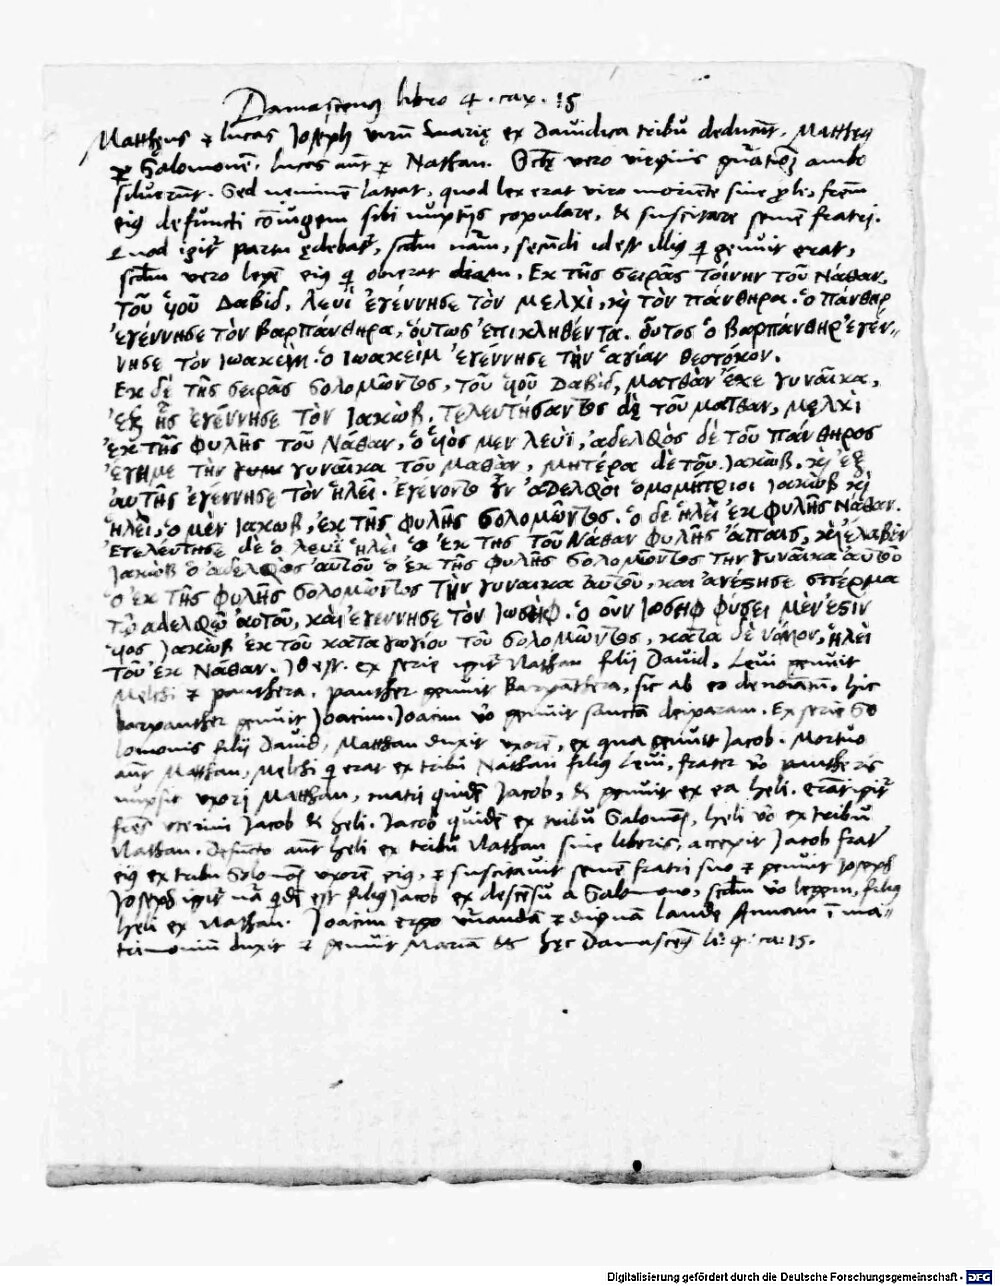 Damascenus libro 4. cap. 15
Matthęus & Lucas Ioseph virū Marię ex Dauidica tribu deducūt. Matthęus
per Salomonē, Lucas aūt per Nathan. vero virginis ambo
siluerūt. Sed neminē lateat, quod lex erat viro moriēte sine ꝓle, frēm
eius defuncti cōiugem sibi nuptijs copulare, & suscitare semē fratri.
Quod igit̄ partu ędebat̄, scdm nām, secūdi id est illius qui genuit erat,
scdm vero legē eius qui obierat. Ἐκ τῆς σειρᾶς τοίνυν τοῦ Νάθαν,
τοῦ ὑοῦ Δαβίδ, λευὶ ἐγέννησε τὸν μελχὶ, κὶ τὸν πάνθηρα. ὁ πάνθηρ
ἐγέννησε τὸν βαρπάνθηρα, ὅυτως ἐπικληθέντα. ὅυτος ὁ βαρπάνθηρ ἐγέν-
νησε τὸν Ιωακείμ. ὁ Ιωακεὶμ ἐγέννησε τὴν ἁγίαν θεοτόκον.
Εκ δὲ τῆς σειρᾶς σολομῶντος, τοῦ ὑοῦ Δαβίδ, ματθὰν ἔχε γυναῖκα,
ἐξ ἧς ἐγέννησε τὸν Ιακώβ. τελευτήσαντος δὲ τοῦ ματθαν, μελχὶ
ἐκ τῆς φυλῆς τοῦ Νάθαν, ὁ ὑὸς μεν λευὶ, ἀδελφὸς δὲ τοῦ πάνθηρος
ἔγημε τὴν γυναῖκα τοῦ μαθὰν, μητέρα δὲ τοῦ Ιακώβ, κὶ ἐξ
αυτῆς ἐγέννησε τὸν ἡλεί. Εγένοντο οὖν ἀδελφοὶ ὁμομήτριοι Ιακὼβ κὶ
ἡλεὶ, ὁ μὲν Ιακωβ, ἐκ τῆς φυλῆς σολομῶντος. ὁ δὲ ἡλεὶ ἐκ φυλῆς Νάθαν.
Ετελεύτησε δὲ ὁ ἡλεὶ ὁ ἐκ της τοῦ Νάθαν φυλῆς ἄπαις, κὶ ἔλαβεν
Ιακὼβ ὁ ἀδελφος αὐτοῦ ὁ ἐκ τῆς φυλῆς σολομῶντος την γυναῖκα αὐτοῦ
ὁ ἐκ τῆς φυλῆς σολομῶντος τὴν γυναικα αὐτοῦ, και ἀνέςησε σπέρμα
τῷ αδελφῷ αυτοῦ, καὶ ἐγεννησε τὸν Ιωσήφ. ὁ οὖν Ιωσὴφ φύσει μὲν ἐςὶν
ὑὸς Ιακὼβ ἐκ τοῦ καταγωγίου τοῦ σολομῶντος, κατα δὲ νόμον, ἡλεὶ
τοῦ ἐκ Νάθαν. Id est. ex serie igit̄ Nathan filij Dauid, Leui genuit
Melchi & panthera. panther genuit Barpāthera, sic ab eo denoīatū. hic
barpanther genuit Ioacim. Ioacim vō genuit sanctā deiparam. Ex serie So
lomonis filij Dauid, Matthan duxit vxorē, ex qua genuit Iacob. Mortuo
aūt Matthan, Melchi qui erat ex tribu Nathan filius Leui, frater vō pantheris
nupsit vxori Matthan, matri quidē Iacob, & genuit ex ea heli. Erāt igit̄
frēs vterini Iacob & heli. Iacob quidē ex tribu Salomonis, heli vō ex tribu
Nathan. Defuncto aūt heli ex tribu Nathan sine liberis, accepit Iacob frater
eius ex tribu Solomonis vxorē eius, & suscitauit semē fratri suo & genuit Ioseph
Ioseph igit̄ nā qdē est filius Iacob ex descēsu a Salomone, scdm vō legem, filius
heli ex Nathan. Ioacim ergo & dignā laude Annam ī ma-
trimoniū duxit & genuit Mariā Hęc Damascenus li: 4: ca: 15.
Digitalisierung gefördert durch die Deutsche Forschungsgemeinschaft - DFG